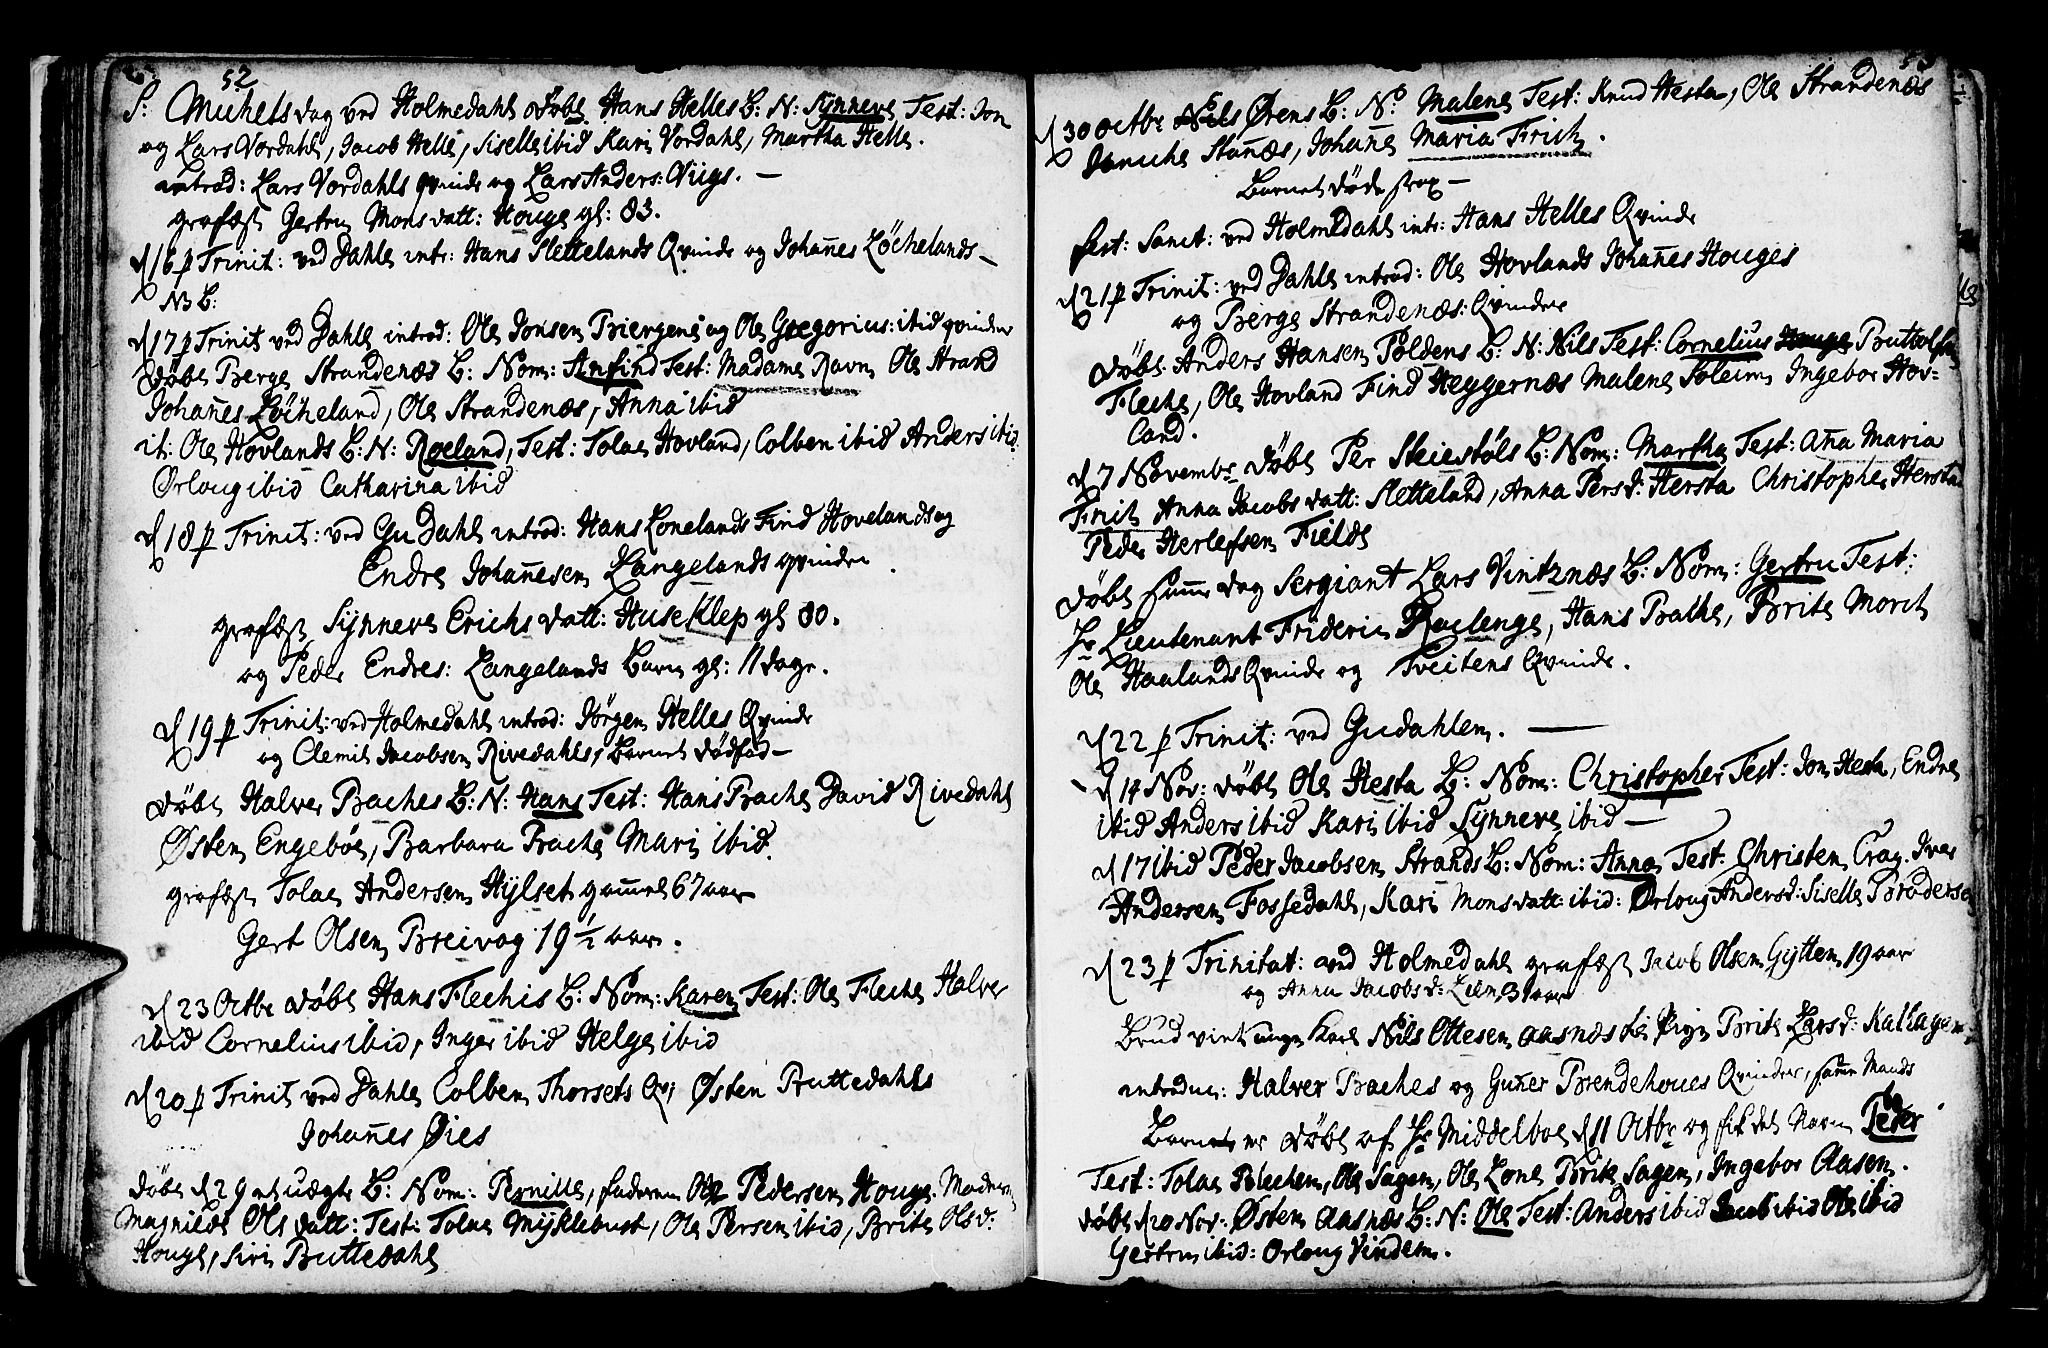 52
S: Michels dag ved Holmedahl døbt Hans Helles B: N: Synneve Test: Jon
og Lars Vordahl, Jacob Helle, Siselle ibid Kari Vordahl, Martha Helle.
introd: Lars Vordahls qvinde og Lars Anders: Viigs. —
grafæst Gertru Mons datt: Houge gl: 83.
d 16 p Trinit: ved Dahle intr: Hans Slettelands Qvinde og Johañes Löchelands —
NB:
d 17 p Trinit ved Dahle introd: Ole Jonsen Biergene og Ole Gregorius: ibid qvinder
døbt Berge Strandenæs B: Nom: Anfind Test: Madame Ravn Ole Strand
Johañes Löcheland, Ole Strandenæs, Anna ibid
it: Ole Hovlands B: N: Roeland, Test: Tolae Hovland, Colben ibid Anders ibid.
Ørloug ibid Catharina ibid
d 18 p Trinit: ved Gu Dahl introd: Hans Lonelands Find Hovelands og
Endre Johañesen Langelands qvinder.
grafæst Synneve Erichs datt: Huseklep gl 80.
og Peder Endres: Langelands Barn gl: 11 dage.
d 19 p Trinit: ved Holmedahl introd: Jörgen Helles Qvinde
og Clemit Jacobsen Rivedahls, Barnet dödfød —
døbt Halver Baches B: N: Hans Test: Hans Bache David Rivedahl
Østen Engebøe, Barbara Bache Mari ibid.
grafæst Tolae Andersen Hylset gammel 67 aar
Gert Olsen Breivog 19 1/2 aar.
d 23 Octbr døbt Hans Flechis B: Nom: Karen Test: Ole Fleche Halver
ibid Cornelius ibid, Inger ibid Helge ibid
d 20 p Trinit ved Dahle Colben Thorsets Qv: Østen Buttedahls
Johañes Øies
døbt d 29 et uægte B: Nom: Pernille, faderen Ole Pedersen Houge. Moderen
Magnilde Ols datt: Test: Tolae Myklebust, Ole Persen ibid, Brite Olsd:
Houge, Siri Buttedahl
53
d 30 Octbr Nils Ørens B: No Malene Test: Knud Hesta, Ole Strandenæs
Joruche Stañæs, Johañe Maria Frich.
Barnet døde strax —
Fest: Sanct: ved Holmedahl intr: Hans Helles Qvinde
d 21 p Trinit: ved Dahle introd: Ole Hovlands Johañes Houges
og Berge Strandenæs: Qvinder
døbt Anders Hansen Poldens B: N: Nils Test: Cornelius Buttolfsen
Fleche, Ole Hovland Find Heggernæs Malene Soleim, Ingebor Hov=
land.
d 7 Novembr døbt Per Skiestöls B: Nom: Martha Test: Aña Maria
Frich Anna Jacobs datt: Sletteland, Anna Persd: Hersta Christopher Herstad
Peder Herlefsen Fielde
døbt samme dag Sergiant Lars Vintznæs B: Nom: Gertru Test:
Hr Lieutenant Frideric Raclenge, Hans Bache, Brite Morch
Ole Haalands Qvinde og Tveitens Qvinde.
d 22 p Trinit: ved Gudahlen. —
d 14 Nov: døbt Ole Hesta B: Nom: Christopher Test: Jon Hesta, Endre
ibid Anders ibid Kari ibid Synneve ibid —
d 17 ibid Peder Jacobsen Strands B: Nom: Anna Test: Christen Crag. Iver
Andersen Fossedahl, Kari Mons datt: ibid: Ørloug Andersd: Siselle Brodersd
d 23 p Trinitat: ved Holmedahl grafæst Jacob Olsen Gytten 19 aar
og Anna Jacobs d: Lien 31 aar
Brud viet unge Karl Nils Ottesen Aasnæs & Pige Brite Lars d: Kallager
introduc: Halver Baches og Guñer Brendehoues Qvinder, samme Mands
Barn er døbt af Hr Middelboe d 11 Octbr og fik det Navn Peder
Test: Tolae Blechen, Ole Sagen, Ole Lone Brite Sagen, Ingebor Aasen.
døbt d 20 Nov: Østen Aasnæs B: N: Ole Test: Anders ibid Jacob ibid Ole ibid
Gertru ibid: Ørloug Vindem.